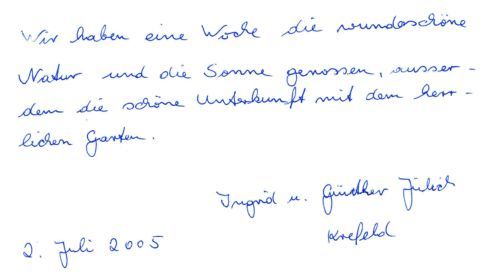 Wir haben eine Woche die wunderschöne
Natur und die Sonne genossen, ausser-
dem die schöne Unterkunft mit dem herr-
lichen Garten.
Ingrid u. Günther Jülich
Krefeld
2. Juli 2005